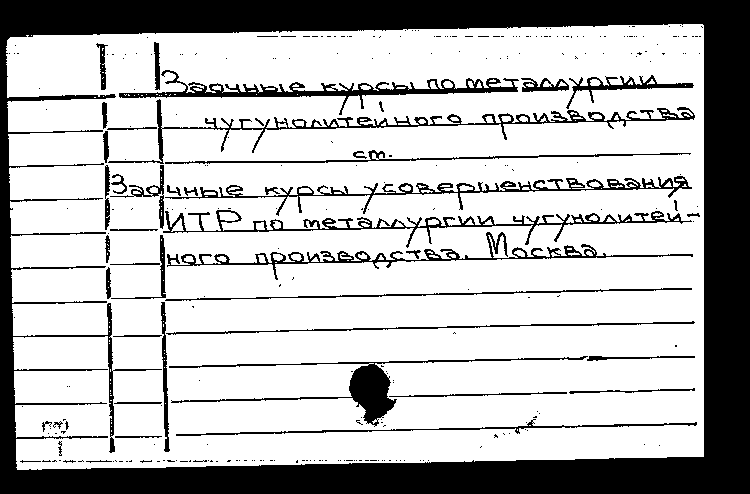 Заочные курсы по металлургии
чугунолитейного производства
ст.
Заочные курсы усовершенствования
ИТР по металлургии чугунолитей-
ного производства. Москва.